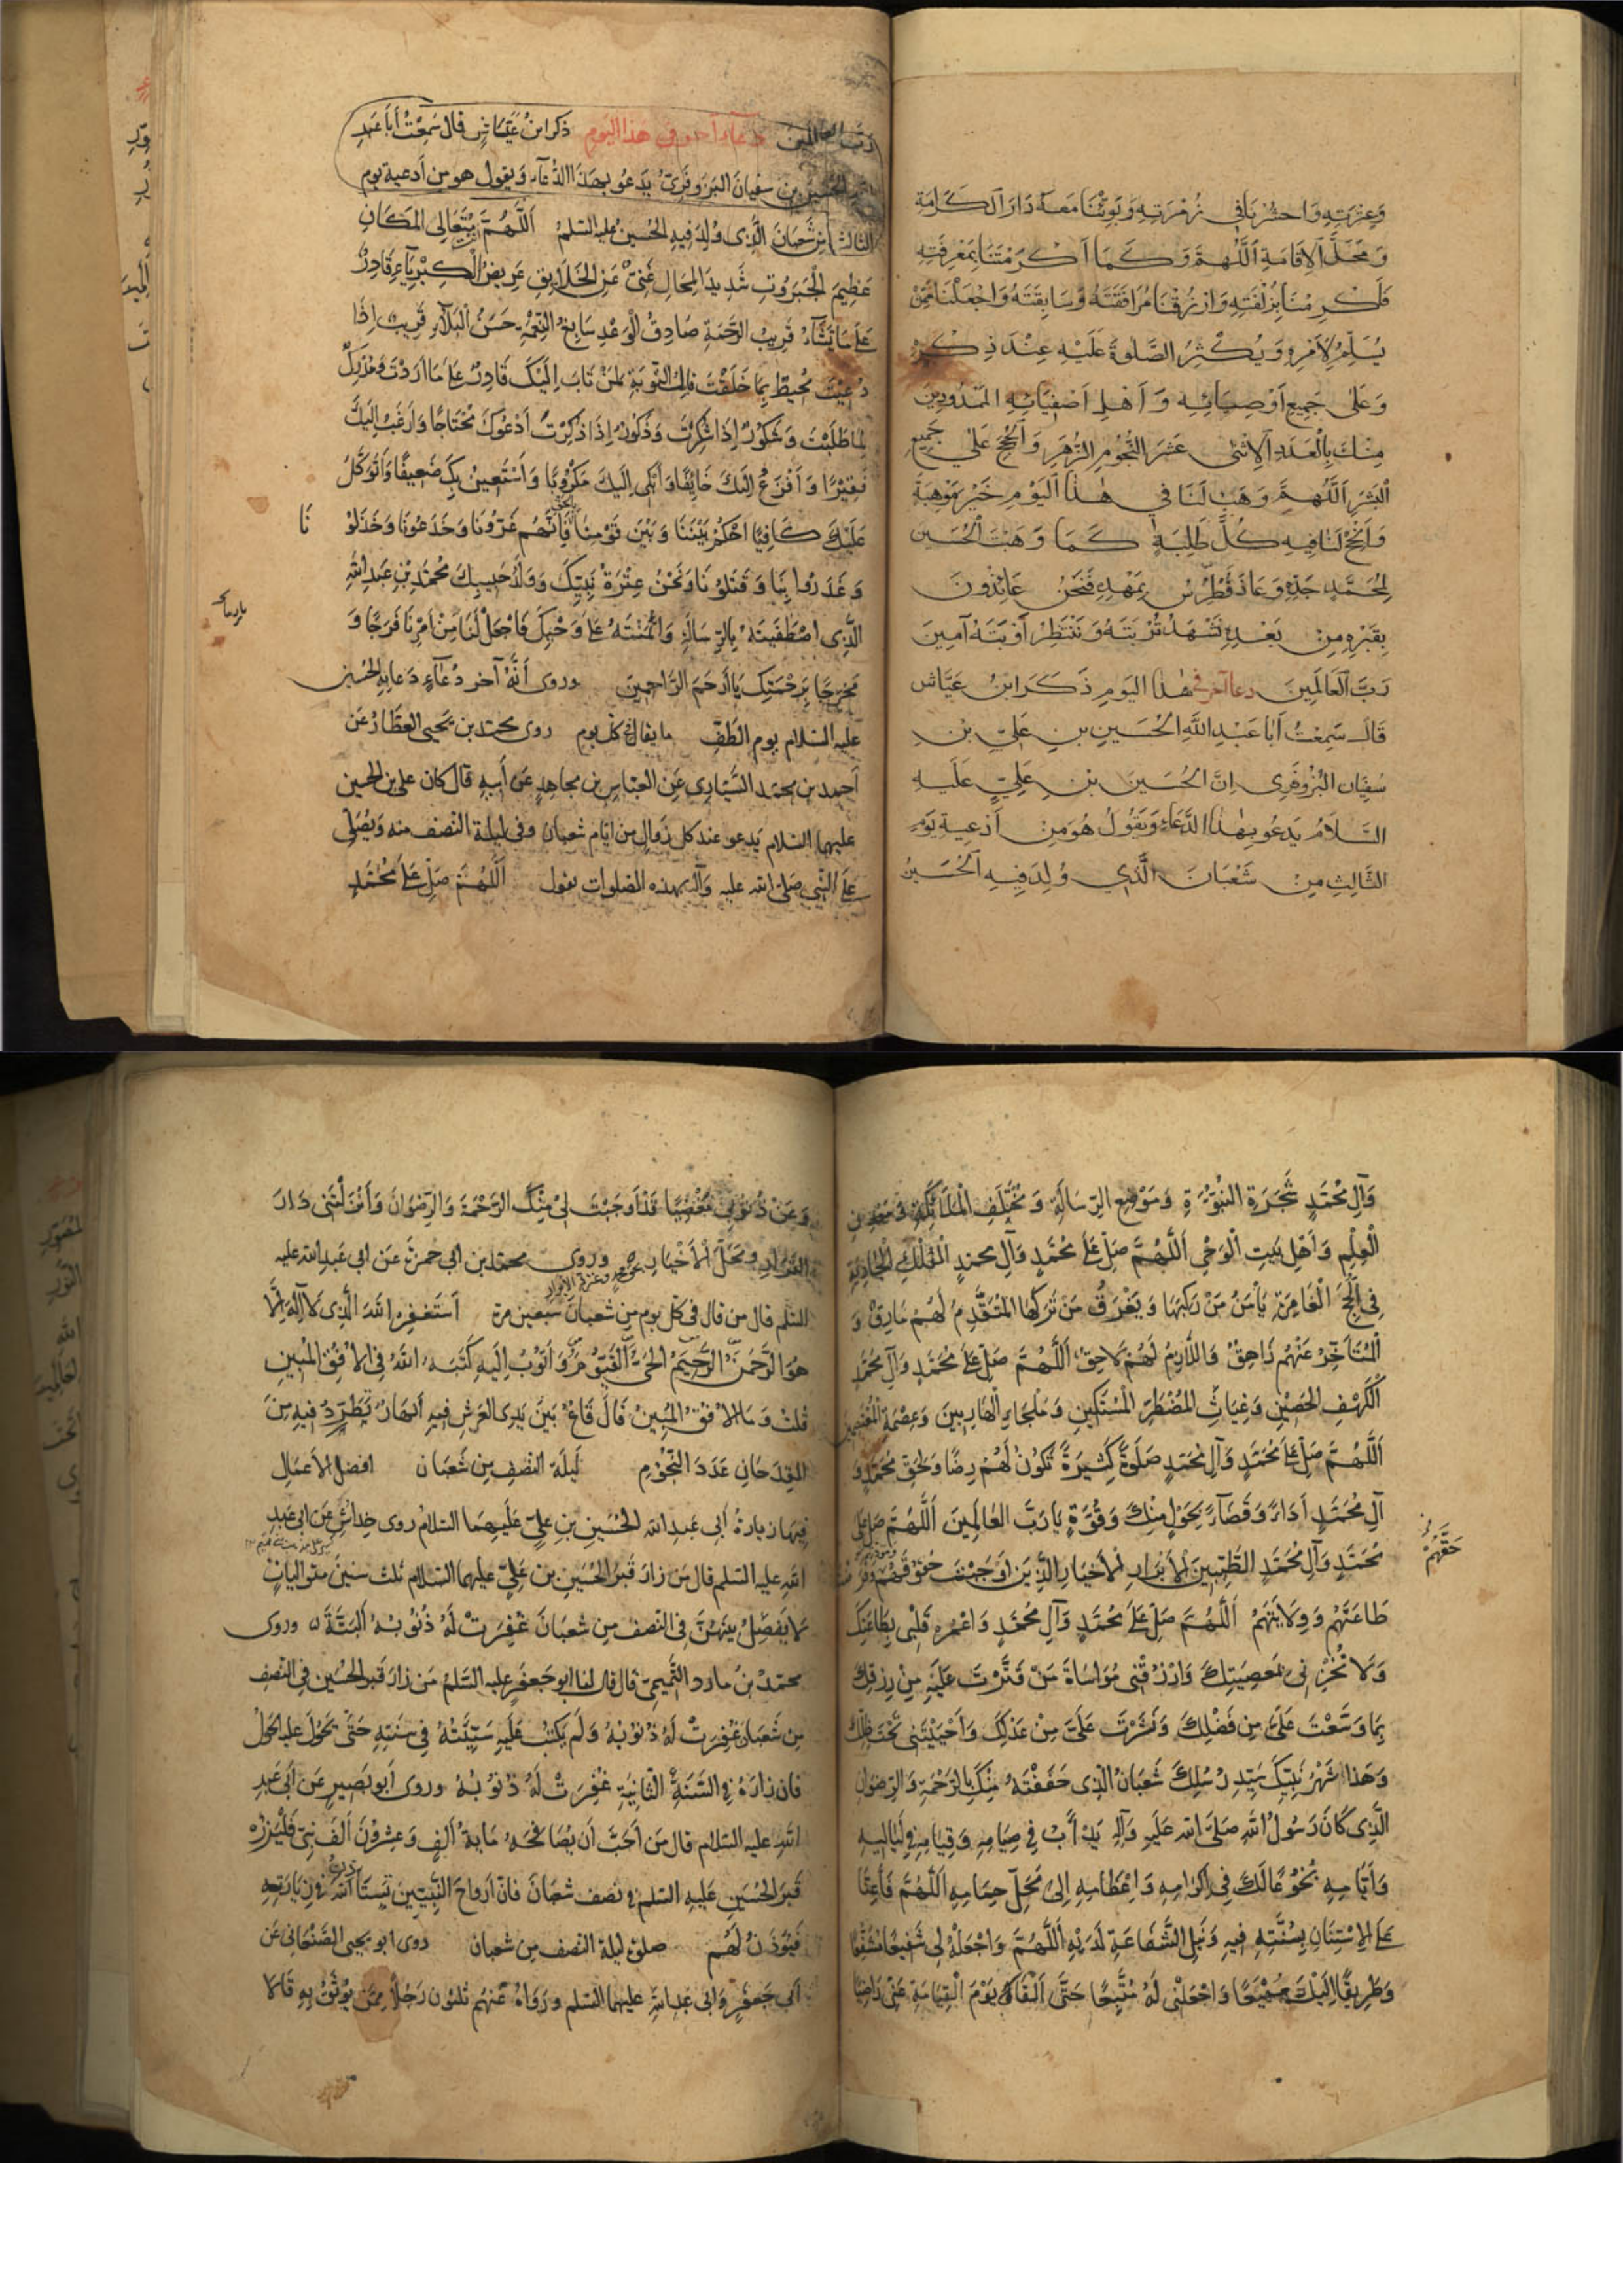 وَعِتْرَتِهِ وَاحْشُرْنَا فِي زُمْرَتِهِ وَبَوِّئْنَا مَعَهُ دَارَ الْكَرَامَةِ
وَمَحَلَّ الْإِقَامَةِ اَللَّهُمَّ وَكَمَا أَكْرَمْتَنَا بِمَعْرِفَتِهِ
فَأَكْرِمْنَا بِزُلْفَتِهِ وَارْزُقْنَا مُرَافَقَتَهُ وَسَابِقَتَهُ وَاجْعَلْنَا مِمَّنْ
يُسَلِّمُ لِأَمْرِهِ وَيُكْثِرُ الصَّلٰوةَ عَلَيْهِ عِنْدَ ذِكْرِهِ
وَعَلٰى جَمِيعِ أَوْصِيَائِهِ وَأَهْلِ أَصْفِيَائِهِ الْمَمْدُودِينَ
مِنْكَ بِالْعَدَدِ الْاِثْنَى عَشَرَ النُّجُومِ الزُّهَرِ وَالْحُجَجِ عَلٰى جَمِيعِ
الْبَشَرِ اَللَّهُمَّ وَهَبْ لَنَا فِي هٰذَا الْيَوْمِ خَيْرَ مَوْهِبَةٍ
وَأَنْجِحْ لَنَا فِيهِ كُلَّ طَلِبَةٍ كَمَا وَهَبْتَ الْحُسَيْنَ
لِمُحَمَّدٍ جَدِّهِ وَعَاذَ فُطْرُسُ بِمَهْدِهِ فَنَحْنُ عَائِذُونَ
بِقَبْرِهِ مِنْ بَعْدِهِ نَشْهَدُ تُرْبَتَهُ وَنَنْتَظِرُ أَوْبَتَهُ آمِينَ
رَبَّ الْعَالَمِينَ دعاء آخر في هٰذَا الْيَوْمِ ذَكَرَ ابْنُ عَيَّاشٍ
قَالَ سَمِعْتُ أَبَا عَبْدِ اللَّهِ الْحُسَيْنِ بنِ عَلِيِّ بْنِ
سُفْيَان الْبُزُوفَرِي اِنَّ الْحُسَيْنَ بْنِ عَلِيٍّ عَلَيهِ
السَّلَامُ يَدعُو بِهٰذَا الدُّعَاءِ وَيَقُولُ هُوَ مِنْ أَدْعِيَةِ يَوْمِ
الثَّالِثِ مِنْ شَعْبَانَ الَّذِي وُلِدَ فِيهِ الْحُسَيْنُ
رَبَّ العالمين دعاء آخر في هذا اليوم ذكر ابنُ عَيّاشٍ قال سَمِعْتُ أَبَا عَبْدِ
الحُسَيْن بن سفيانَ البَزَوفَرِيّ يَدعُو بِهذَا الدُّعَاءِ وَيقول هو من أَدعية يوم
الثالث من شَعْبَانَ الَّذِى وُلِدَ فِيهِ الحُسَينُ عليه السّلم اَللَّهُمَّ مُتَعَالِي المَكَانِ
عَظِيمَ الْجَبَرُوتِ شَدِيدَ المِحَالِ غَنِيٌّ عَنِ الْخَلَايِقِ عَرِيضُ الْكِبْرِيَآءِ قَادِرٌ
عَلَى مَا يَشَآءُ قَرِيبُ الرَّحْمَةِ صَادِقُ الْوَعْدِ سَابِغُ النِّعْمَةِ حَسَنُ الْبَلَآءِ قَرِيبٌ اِذَا
دُعِيتَ مُحِيطٌ بِمَا خَلَقْتَ قَابِلُ التَّوْبَةِ لِمَنْ تَابَ اِلَيْكَ قَادِرٌ عَلَى مَا اَرَدْتَ وَمُدْرِكٌ
لِمَا طَلَبْتَ وَشَكُورٌ اِذَا شُكِرْتَ وَذَكُورٌ اِذَا ذُكِرْتَ اَدْعُوكَ مُحْتَاجًا وَاَرْغَبُ اِلَيْكَ
فَقِيرًا وَاَفْزَعُ اِلَيْكَ خَائِفًا وَاَبْكِى اِلَيْكَ مَكْرُوبًا وَاَسْتَعِينُ بِكَ ضَعِيفًا وَاَتَوَكَّلُ
عَلَيْكَ كَافِيًا اُحْكُمْ بَيْنَنَا وَبَيْنَ قَوْمِنَا بالحق فَاِنَّهُم غَرُّونَا وَخَدَعُونَا وَخَذَلُو نَا
وَغَدَرُوا بِنَا وَقَتَلُونَا وَنَحْنُ عِتْرَةُ نَبِيِّكَ وَوَلَدُ حَبِيبِكَ مُحَمَّدِ بْنِ عَبْدِ اللهِ
الَّذِى اصْطَفَيتَهُ بِالرِّسَالَةِ وَائْتَمَنْتَهُ عَلَى وَحْيِكَ فَاجْعَلْ لَنَا مِنْ اَمْرِنَا فَرَجًا وَ
مَخْرَجًا بِرَحْمَتِكَ يَا اَرْحَمَ الرَّاحِمِينَ وروى أَنَّهُ آخر دُعَآءٍ دَعَا بِهِ الحُسَين
عليه السّلام يوم الطَّفِّ ما يقال في كل يوم روى محمد بن يَحيى العطّارُ عَن
أحمد بن محمّد السَّيَّارِي عَن العبّاسِ بن مجاهدٍ عَن أَبِيهِ قالَ كان علي بن الحسين
عليهما السلام يَدعو عند كل زوالٍ من ايّام شعبان وفي ليلة النّصف منه وَيُصَلّى
عَلَى النَّبِيّ صَلّى الله عليه وَآله بهذه الصلوات يقول اَللَّهُمَّ صَلِّ عَلَى مُحَمَّدٍ
وَآلِ مُحَمَّدٍ شَجَرَةِ النُّبُوَّةِ وَمَوْضِعِ الرِّسَالَةِ وَمُخْتَلَفِ الْمَلَآئِكَةِ وَمَعْدِنِ
الْعِلْمِ وَاَهْلِ بَيتِ الْوَحْىِ اَللَّهُمَّ صَلِّ عَلَى مُحَمَّدٍ وَآلِ محمدٍ الْفُلْكِ الْجَارِيَةِ
فِى اللُّجَجِ الْغَامِرَةِ يَأْمَنُ مَنْ رَكِبَهَا وَيَغْرَقُ مَنْ تَرَكَهَا المُتَقَدِّمُ لَهُمْ مَارِقٌ وَ
الْمُتَأَخِّرُ عَنْهُم زَاهِقٌ وَاللَّازِمُ لَهُمْ لَاحِقٌ اَللَّهُمَّ صَلِّ عَلَى مُحَمَّدٍ وَآلِ مُحَمَّدٍ
الْكَهْفِ الْحَصِيْنِ وَغِيَاثِ الْمُضْطَرِّ الْمُسْتَكِينِ وَمَلْجَاءِ الْهَارِبِينَ وَعِصْمَةِ الْمُعْتَصِمِينَ
اَللَّهُمَّ صَلِّ عَلَى مُحَمَّدٍ وَآلِ مُحَمَّدٍ صَلَوةً كَثِيرَةً تَكُونُ لَهُمْ رِضًا وَلِحَقِّ مُحَمَّدٍ وَ
آلِ مُحَمَّدٍ اَدَاءً وَقَضَآءً بِحَوْلٍ مِنْكَ وَقُوَّةٍ يَا رَبَّ العَالَمِينَ اَللَّهُمَّ صَلِّ عَلَى
مُحَمَّدٍ وَآلِ مُحَمَّدٍ الطَّيِّبِينَ الْاَبْرَارِ الْاَخْيَارِ الَّذِينَ اَوْجَبْتَ حُقُوقَهُمْ وَفَرَضْتَ
حَقَّهُمْ
طَاعَتَهُم وَوِلَايَتَهُمْ اَللَّهُمَّ صَلِّ عَلَى مُحَمَّدٍ وَآلِ مُحَمَّدٍ وَاعْمُرْ قَلْبِى بِطَاعَتِكَ
وَلَا تُخْزِنِى بِمَعصِيَتِكَ وَارْزُقْنِى مُوَاسَاةَ مَنْ قَتَّرْتَ عَلَيْهِ مِنْ رِزْقِكَ
بِمَا وَسَّعْتَ عَلَىَّ مِن فَضْلِكَ وَنَشَرْتَ عَلَىَّ مِنْ عَدْلِكَ وَاَحْيَيْتَنِى تَحْتَ ظِلِّكَ
وَهَذَا شَهْرُ نَبِيِّكَ سَيِّدِ رُسُلِكَ شَعْبَانُ الَّذِى حَفَفْتَهُ مِنْكَ بِالرَّحْمَةِ وَالرِّضْوَانِ
الَّذِى كَانَ رَسُولُ اللهِ صَلَّى الله عَلَيهِ وَآلِهِ يَدْأَبُ فِى صِيَامِهِ وَقِيَامِهِ فِى لَيَالِيهِ
وَاَيَّامِهِ بُخُوعًا لَكَ فِى اِكْرَامِهِ وَاِعْظَامِهِ اِلَى مَحَلِّ حِمَامِهِ اَللَّهُمَّ فَاَعِنَّا
عَلَى الْاِسْتِنَانِ بِسُنَّتِهِ فِيهِ وَنَيْلِ الشَّفَاعَةِ لَدَيْهِ اَللَّهُمَّ وَاجْعَلْهُ لِى شَفِيعًا مُشَفَّعًا
وَطَرِيقًا اِلَيْكَ مَهْيَعًا وَاجْعَلْنِى لَهُ مُتَّبِعًا حَتَّى اَلْقَاكَ يَوْمَ الْقِيَامَةِ عَنِّى رَاضِيًا
وَعَنْ ذُنُوبِى مُغْضِيًا قَدْ اَوْجَبْتَ لِى مِنْكَ الرَّحْمَةَ وَالرِّضْوَانَ وَاَنْزَلْتَنِى دَارَ
القَرَارِ وَمَحَلَّ الْاَخْيَارِ وروى محمّد بن ابى حمزةَ عَن ابى عَبدِ الله عليه
السّلم قال من قال فى كلّ يوم مِن شعبانَ سبعين مرة اَستَغفِرُ اللهَ الَّذِى لَا اِلَهَ اِلَّا
هُوَ الرَّحْمَنُ الرَّحِيمُ الحَىُّ الْقَيُّومُ وَاَتُوبُ اِلَيهِ كَتَبَهُ اللهُ فِى الْاُفُقِ الْمُبِينِ
قُلتُ وَمَا الاُفُقُ المُبِينُ قَالَ قَاعٌ بَينَ يَدَىِ العَرْشِ فِيهِ اَنهَارٌ تَطَّرِدُ فِيهِ مِنَ
القِدحَانِ عَدَدَ النُّجُومِ لَيلَة النصفِ مِن شَعبَان افضل الاَعمَالِ
فِيهَا زيارةُ اَبِى عَبدِ الله الحُسَيْنِ بنِ عَلِيٍّ عَلَيهِمَا السّلامُ روى خِداشٌ عَن ابى عَبدِ
الله عليه السّلم قال مَن زارَ قَبرَ الحُسَينِ بن عَلِيٍّ عليهما السّلام ثلث سنينَ متواليات
لا يَفصِلُ بينَهُنَّ فى النّصف مِن شعبَانَ غُفِرَتْ لَهُ ذُنُوبُهُ اَلبَتَّةَ وروى
محمّدُ بنُ مارد التَّميمِيّ قال قال لنا ابو جَعفَرٍ عليه السّلم مَن زارَ قبر الحُسَين فى النّصف
مِن شَعبَانَ غُفِرَتْ لَهُ ذُنُوبُهُ وَلَم يُكتَبْ عَلَيهِ سَيِّئَتُهُ فِى سَنَتِهِ حَتَّى يَحُولَ عليه الحَولُ
فَان زارَهُ فِى السَّنَةِ الثَّانِيَةِ غُفِرَتْ لَهُ ذُنُوبُهُ وروى اَبو بَصيرٍ عَن اَبى عَبدِ
اللهِ عليه السّلام قال مَن اَحَبَّ اَن يُصَافِحَهُ مَايةُ اَلفٍ وَعِشرُونَ اَلفَ نبىٍّ فَلْيَزُرْ
قَبرَ الحُسَينِ عَلَيهِ السّلم فى نصف شعبَانَ فانّ اَرواحَ النَّبِيِّينَ تَستَأذِنُ اللهَ فى زِيَارَتِهِ
فَيُؤذَنُ لَهُم صلوة ليلة النصف مِن شعبان روى ابو يحيى الصَّنعَانى عَن
اَبى جَعفَرٍ وَابى عَبدِ اللهِ عليهما السّلم وَرَوَاهُ عَنهُم ثلثون رَجُلًا مِمَّن يُوثَقُ بِهِ قَالا